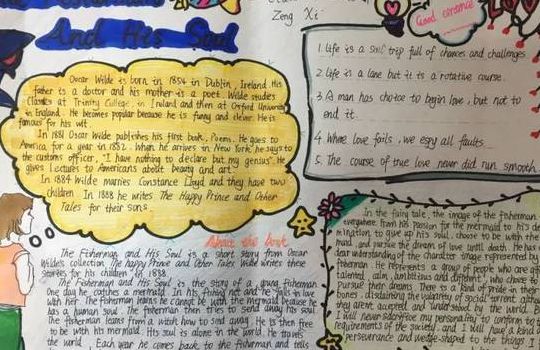 The Fisherman
And His Soul
Zeng Xi
Good sentence
Oscar Wilde is born in 1854 in Dublin, Ireland. His
father is a doctor and his mother is a poet. Wilde studies
Classics at Trinity College, in Ireland and then at Oxford University
in England. He becomes popular because he is funny and clever. He is
famous for his wit.
In 1881 Oscar Wilde publishes his first book, Poems. He goes to
America for a year in 1882. When he arrives in New York he says to
the customs officer, "I have nothing to declare but my genius". He
gives Lectures to Americans about beauty and art.
In 1884 Wilde marries Constance Lloyd and they have two
children. In 1888 he writes The Happy Prince and Other
Tales for their sons.
1. Life is a trip full of chances and challenges
2. Life is a lane but it is a rotative course.
3. A man has choice to begin love, but not to
end it.
4. Where love fails, we espy all faults.
5. The course of true love never did run smooth
About the book
The Fisherman and His Soul is a short story from Oscar
Wilde's collection, The happy Prince and Other Tales. Wilde writes these
stories for his children in 1888.
The Fisherman and His Soul is the story of a young Fisherman.
One day he catches a mermaid in his fishing net and he falls in love
with her. The fisherman learns he cannot be with the mermaid because he
has a human soul. The fisherman then tries to send away his soul.
The fisherman learns from a witch how to send away. He is then free
to be with his mermaid. His soul is alone in the world. He travels
the world. Each year he comes back to the Fisherman and tells
In the fairy tale, the image of the fisherman
everywhere. From his passion for the mermaid to his
to give up his soul, choose to be with the
maid, and pursue the dream of love until death. He has
our understanding of the character image represented by
fisherman. He represents a group of people who are
talented, calm, ambitious and different, who choose to
pursue their dreams. There is a kind of pride in their
bones, disdaining the vulgarity of social torrent,
they aren't accepted and understood by the world. But
I will never sacrifice my personality to conform to
requirements of the society, and I will have a kind of
perseverance and wedge-shaped to the things I